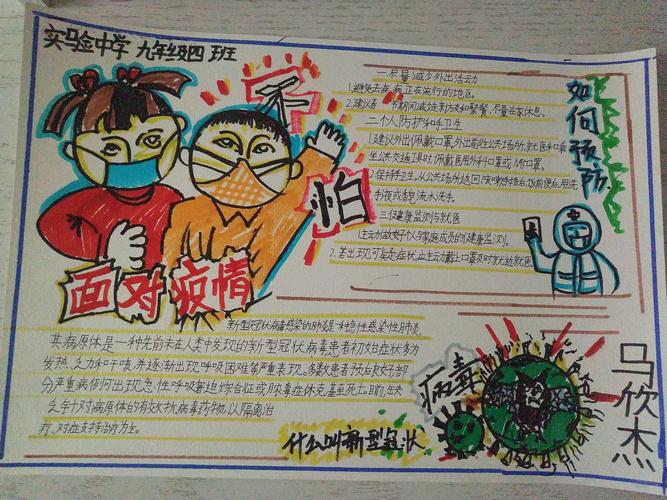 实马金中学 九年级四班
不
怕
面对疫情
如何预防
一.尽量减少外出活动
1.避免去疾病正在流行的地区。
2.建议春节期间减少走亲访友和聚餐,尽量在家休息。
二.个人防护和手卫生
1.建议外出佩戴口罩。外出前往公共场所,就医和乘
坐公共交通工具时,佩戴医用外科口罩或N95口罩。
2.保持手卫生。从公共场所返回,咳嗽手捂后,饭前便后,用洗
手液或香皂流水洗手。
三.健康监测与就医
1.主动做好个人与家庭成员的健康监测。
2.若出现可疑症状,应主动戴上口罩及时就近就医
新型冠状病毒感染的肺炎是一种急性感染性肺炎
其病原体是一种先前未在人类中发现的新型冠状病毒患者初始症状多为
发热、乏力和干咳,并逐渐出现呼吸困难等严重表现。多数患者预后良好,部
分严重病例可出现急性呼吸窘迫综合征或脓毒症休克,甚至死亡。目前,
乏针对病原体的有效抗病毒药物,以隔离治
疗、对症支持治疗为主。
什么叫新型冠状
病毒
马欣杰